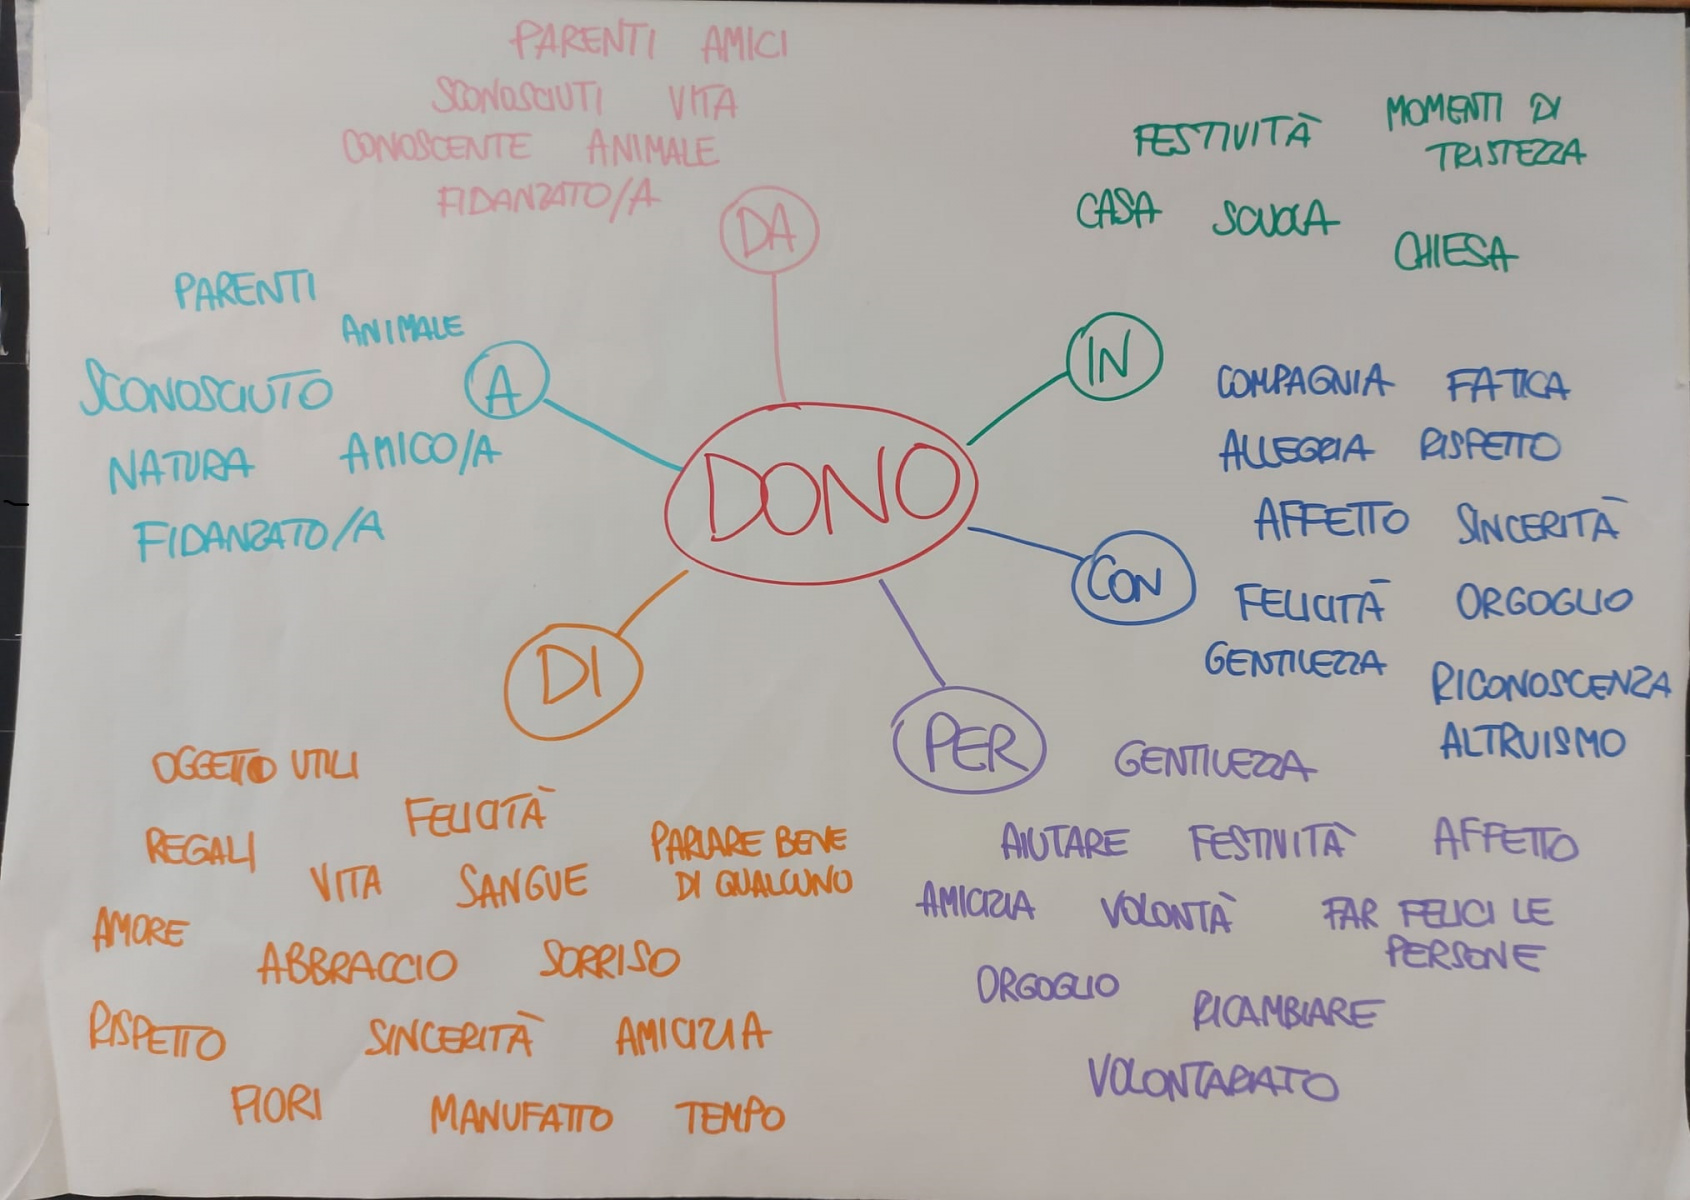 PARENTI AMICI
SCONOSCIUTI VITA
CONOSCENTE ANIMALE
FIDANZATO/A
DA
FESTIVITÀ
MOMENTI DI
TRISTEZZA
CASA SCUOLA
CHIESA
IN
PARENTI
ANIMALE
SCONOSCIUTO
A
NATURA AMICO/A
FIDANZATO/A
DONO
COMPAGNIA FATICA
ALLEGRIA RISPETTO
AFFETTO SINCERITÀ
CON
FELICITÀ ORGOGLIO
GENTILEZZA
RICONOSCENZA
ALTRUISMO
DI
OGGETTO UTILI
FELICITÀ
REGALI
VITA SANGUE
PARLARE BENE
DI QUALCUNO
AMORE
ABBRACCIO SORRISO
RISPETTO SINCERITÀ AMICIZIA
FIORI MANUFATTO TEMPO
PER
GENTILEZZA
AIUTARE FESTIVITÀ AFFETTO
AMICIZIA VOLONTÀ FAR FELICI LE
PERSONE
ORGOGLIO
RICAMBIARE
VOLONTARIATO